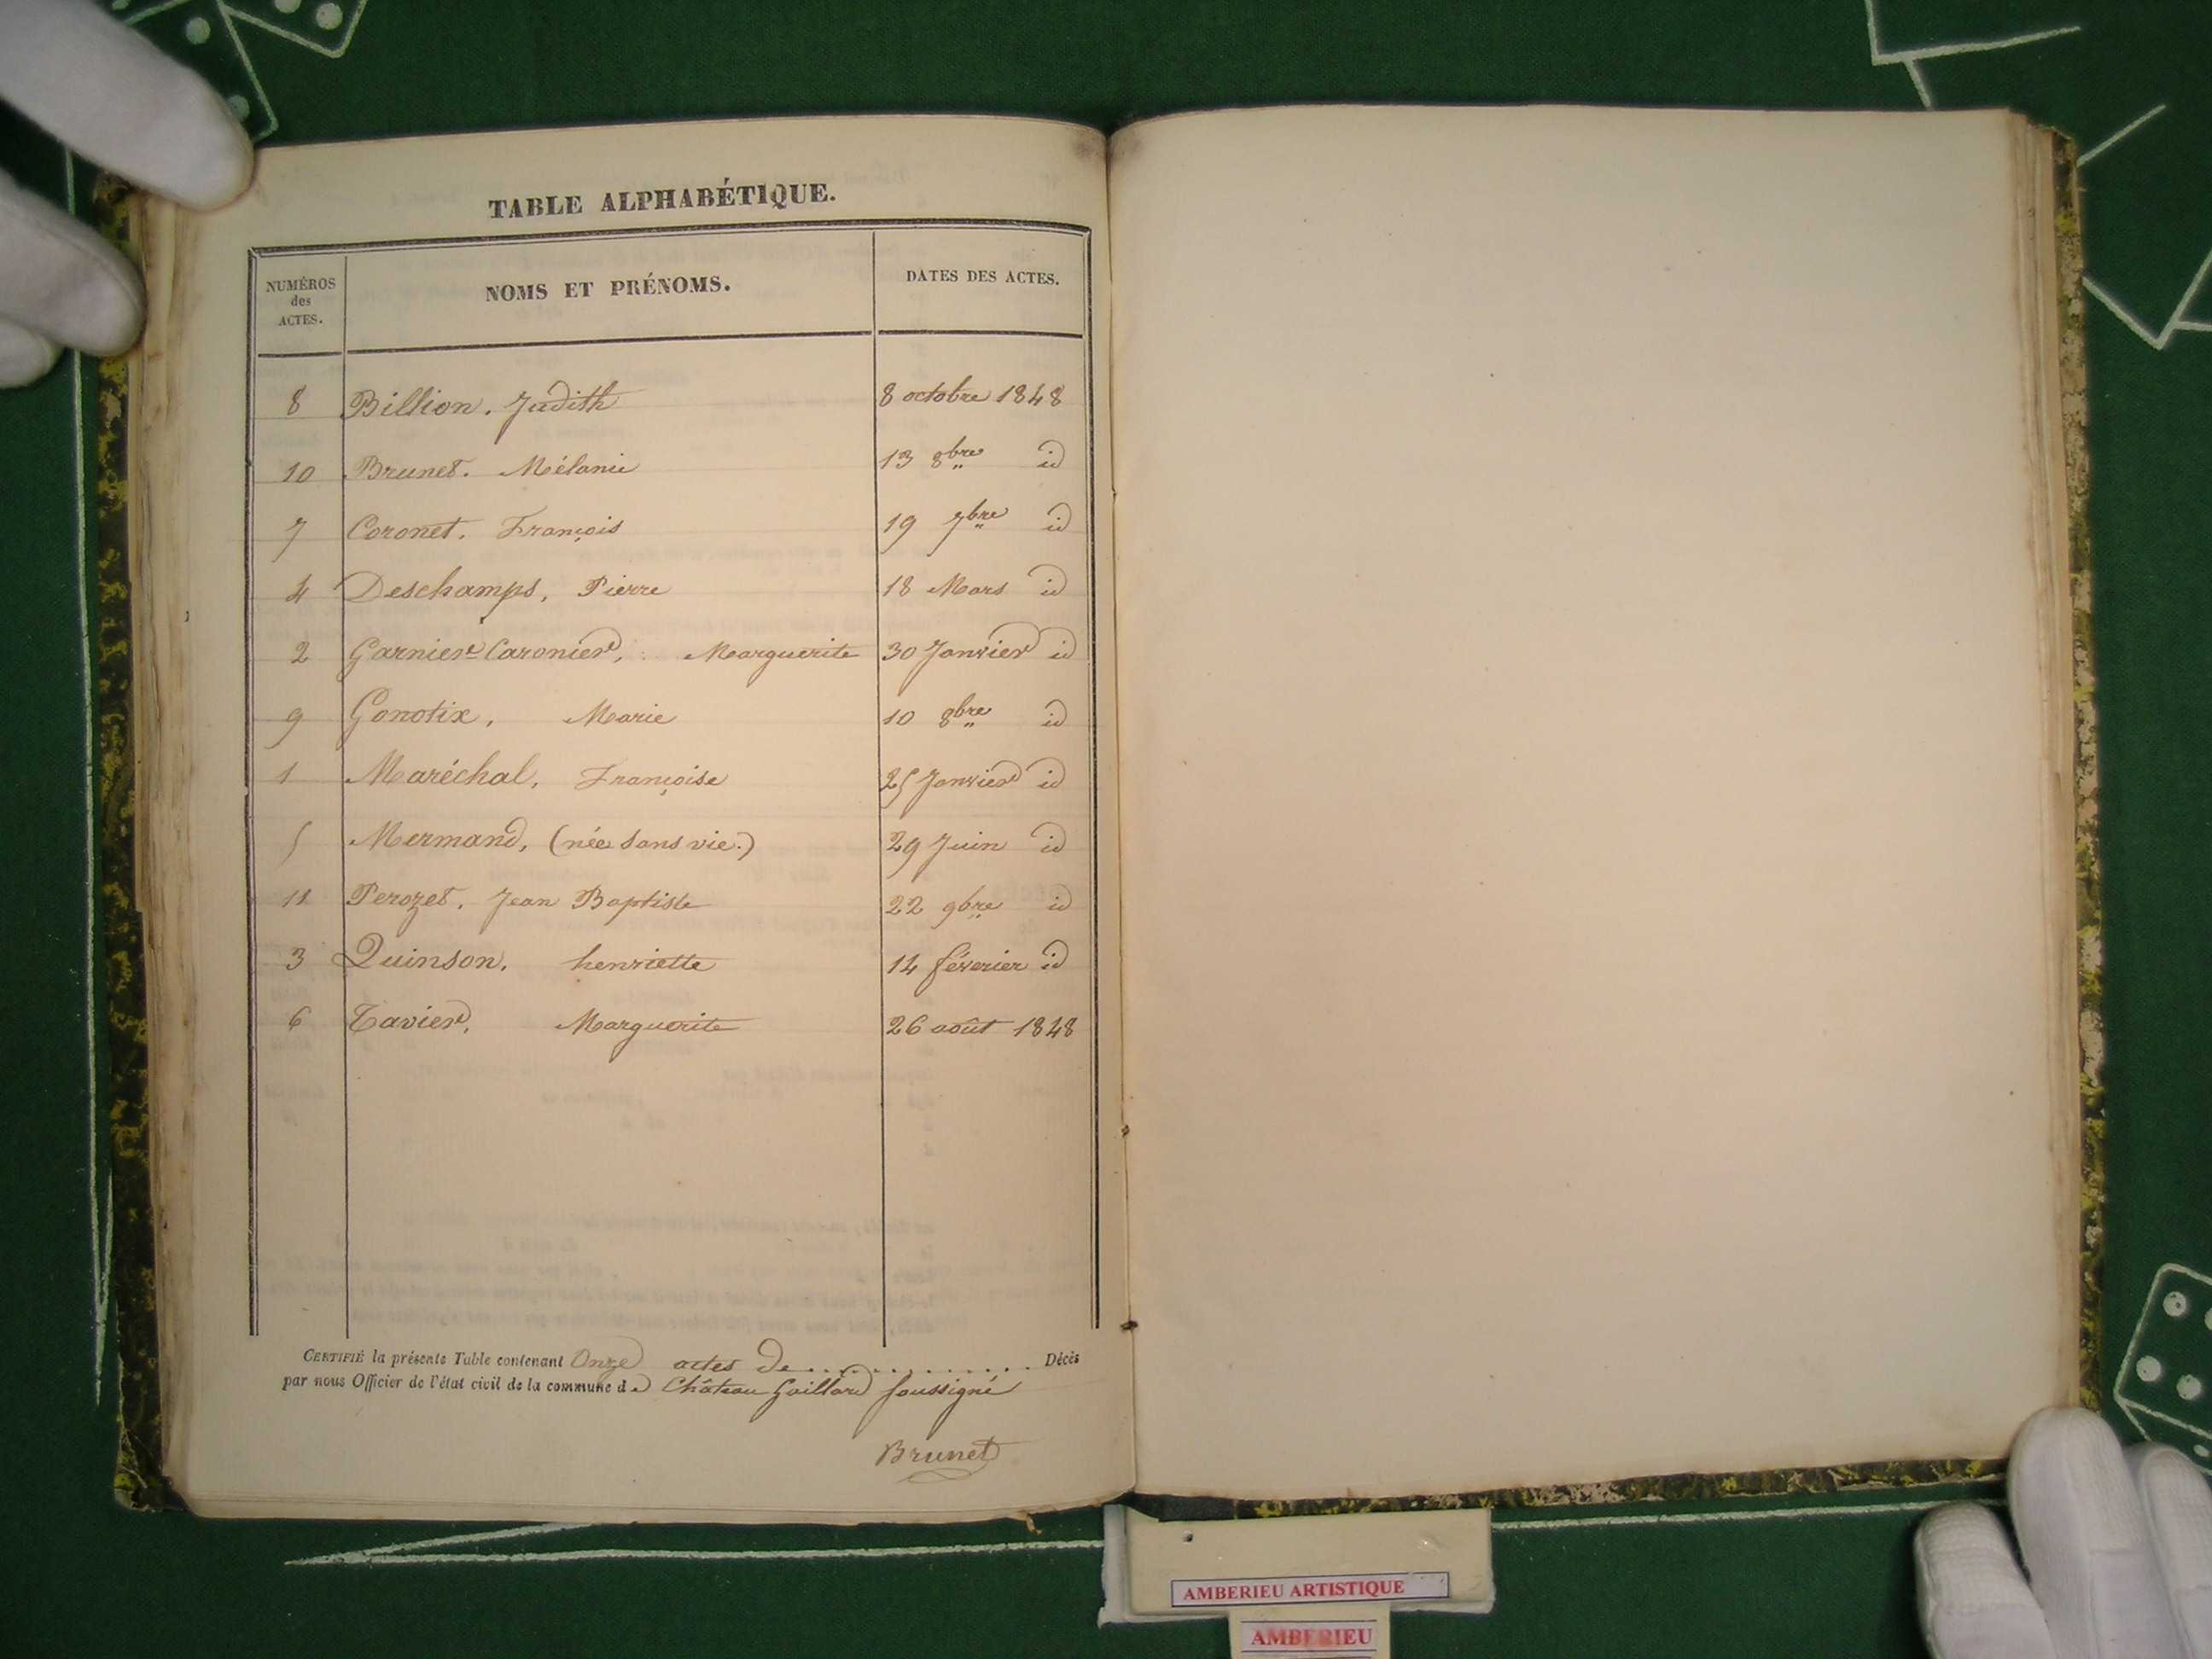 TABLE ALPHABÉTIQUE.
NUMÉROS des ACTES. NOMS ET PRÉNOMS. DATES DES ACTES.
8 Billion. Judith 8 octobre 1848
10 Brunet. Mélanie 13 8bre id
7 Coronet. François 19 7bre id
4 Deschamps, Pierre 18 Mars id
2 Garnier Caronier, Marguerite 30 Janvier id
9 Gonotix, Marie 10 8bre id
1 Maréchal, Françoise 25 Janvier id
5 Mermand, (née sans vie.) 29 Juin id
11 Perozet. Jean Baptiste 22 9bre id
3 Quinson, henriette 14 féverier id
6 Tavier, Marguerite 26 août 1848
CERTIFIÉ la présente Table contenant Onze actes de .............. Décès
par nous Officier de l'état civil de la commune de Château Gaillard soussigné
Brunet
AMBERIEU ARTISTIQUE
AMBERIEU